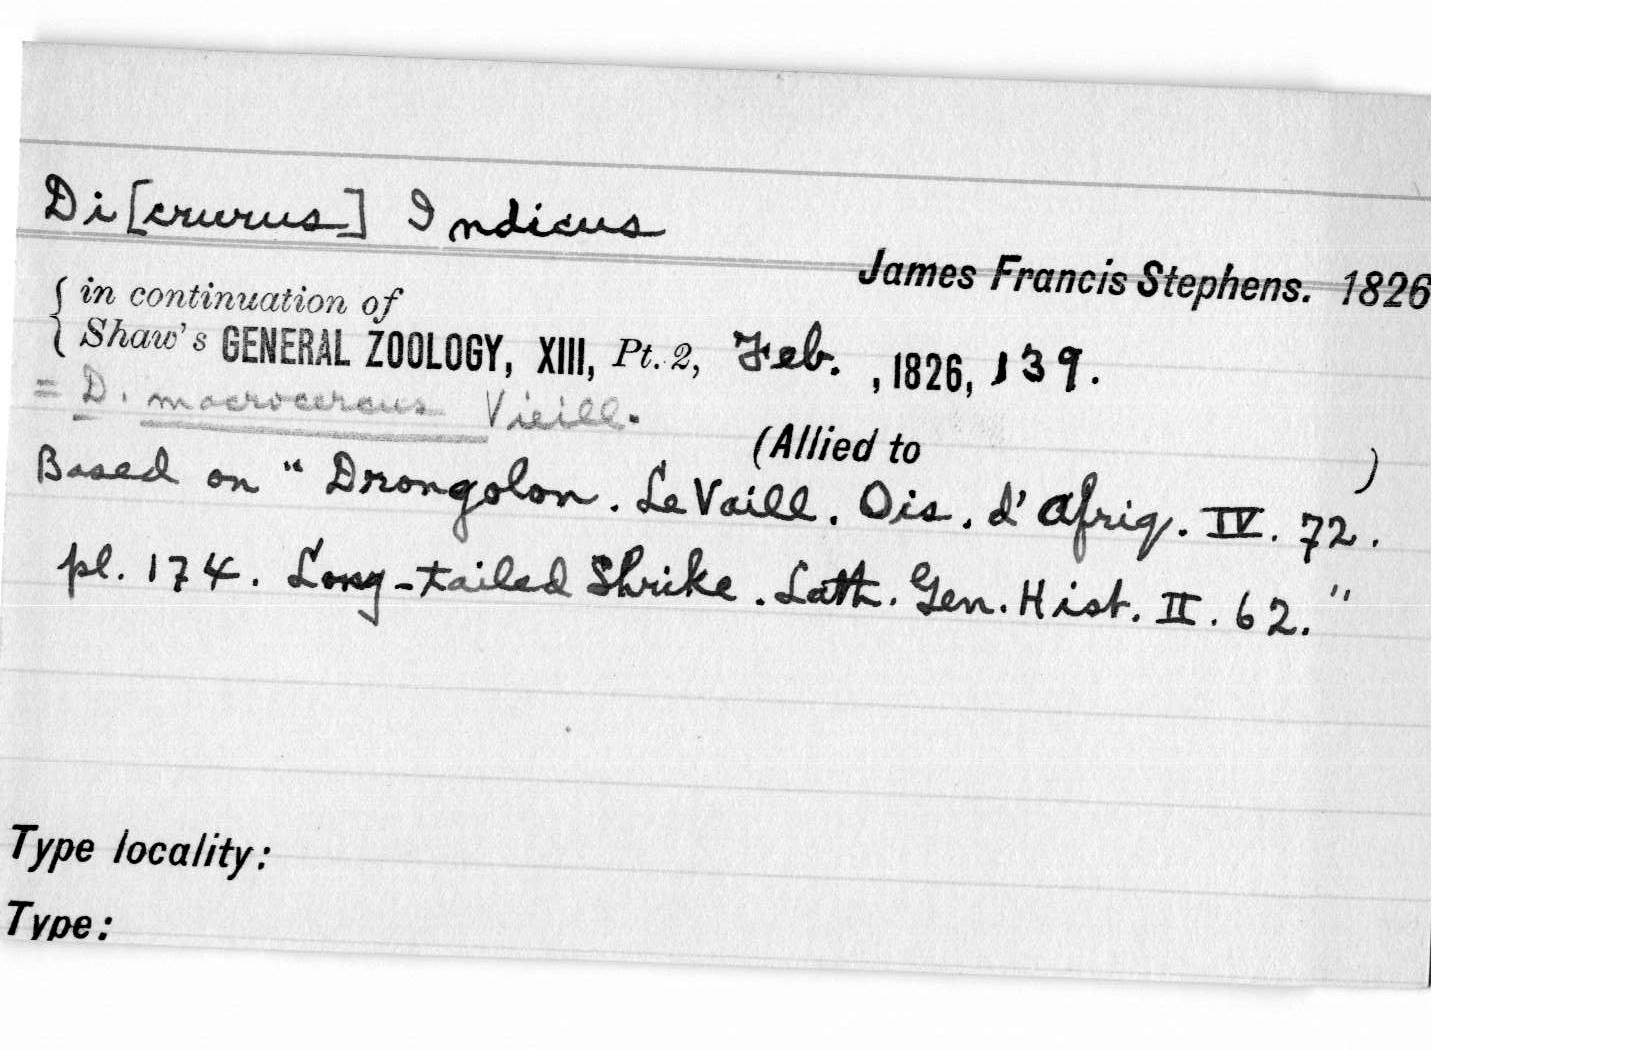 Di[crurus] Indicus
James Francis Stephens. 1826
in continuation of
Shaw's GENERAL ZOOLOGY, XIII, Pt. 2, Feb. , 1826, 139.
= D. macrocercus Vieill.
(Allied to )
Based on "Drongolon. Le Vaill. Ois. d'Afriq. IV. 72.
pl. 174. Long-tailed Shrike. Lath. Gen. Hist. II. 62."
Type locality:
Type: